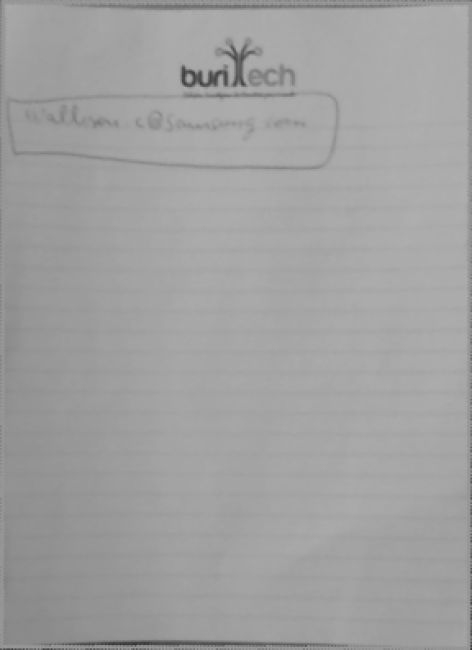 buriTech
Wallison.c@samsung.com